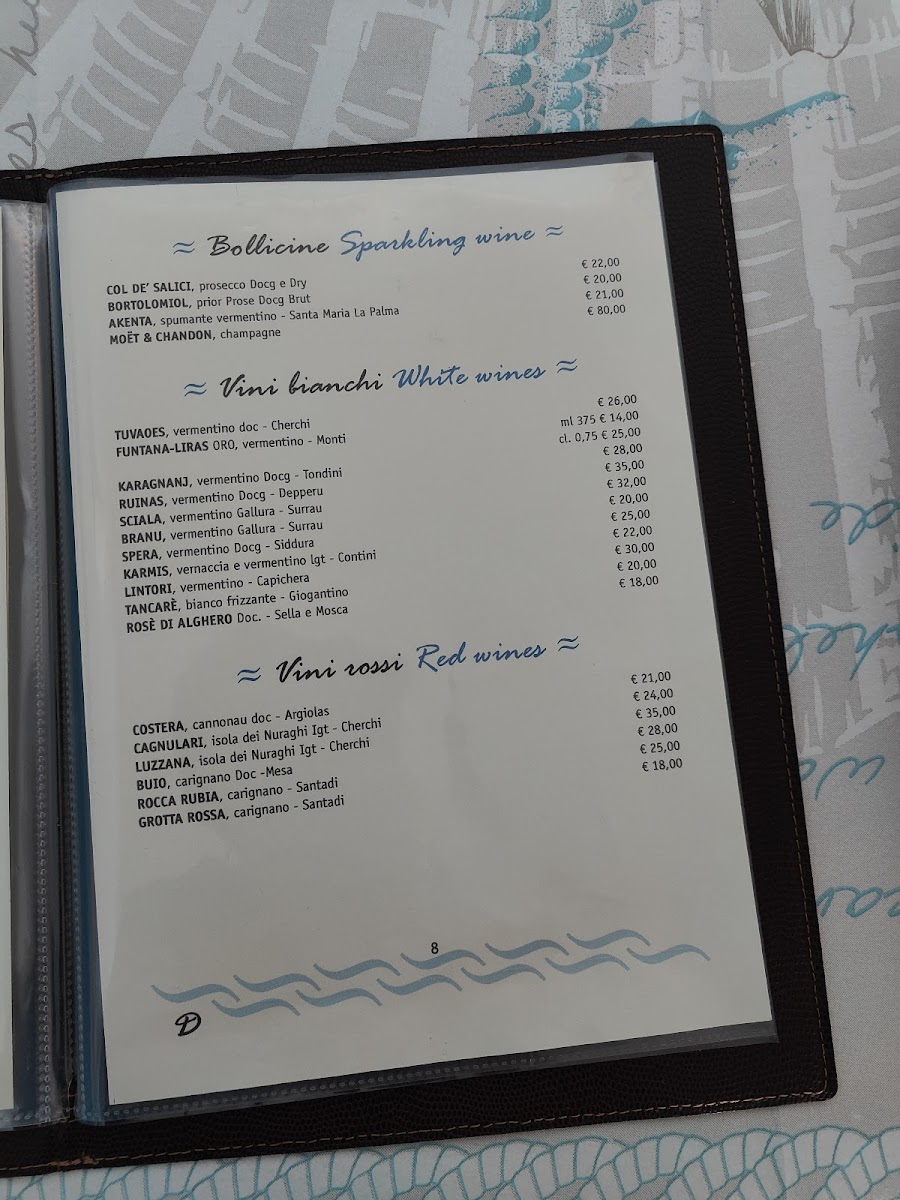 ≈ Bollicine Sparkling wine ≈
COL DE' SALICI, prosecco Docg e Dry € 22,00
BORTOLOMIOL, prior Prose Docg Brut € 20,00
AKENTA, spumante vermentino - Santa Maria La Palma € 21,00
MOËT & CHANDON, champagne € 80,00
≈ Vini bianchi White wines ≈
TUVAOES, vermentino doc - Cherchi € 26,00
FUNTANA-LIRAS ORO, vermentino - Monti ml 375 € 14,00
cl. 0,75 € 25,00
KARAGNANJ, vermentino Docg - Tondini € 28,00
RUINAS, vermentino Docg - Depperu € 35,00
SCIALA, vermentino Gallura - Surrau € 32,00
BRANU, vermentino Gallura - Surrau € 20,00
SPERA, vermentino Docg - Siddura € 25,00
KARMIS, vernaccia e vermentino lgt - Contini € 22,00
LINTORI, vermentino - Capichera € 30,00
TANCARÈ, bianco frizzante - Giogantino € 20,00
ROSÈ DI ALGHERO Doc. - Sella e Mosca € 18,00
≈ Vini rossi Red wines ≈
COSTERA, cannonau doc - Argiolas € 21,00
CAGNULARI, isola dei Nuraghi Igt - Cherchi € 24,00
LUZZANA, isola dei Nuraghi Igt - Cherchi € 35,00
BUIO, carignano Doc -Mesa € 28,00
ROCCA RUBIA, carignano - Santadi € 25,00
GROTTA ROSSA, carignano - Santadi € 18,00
8
D